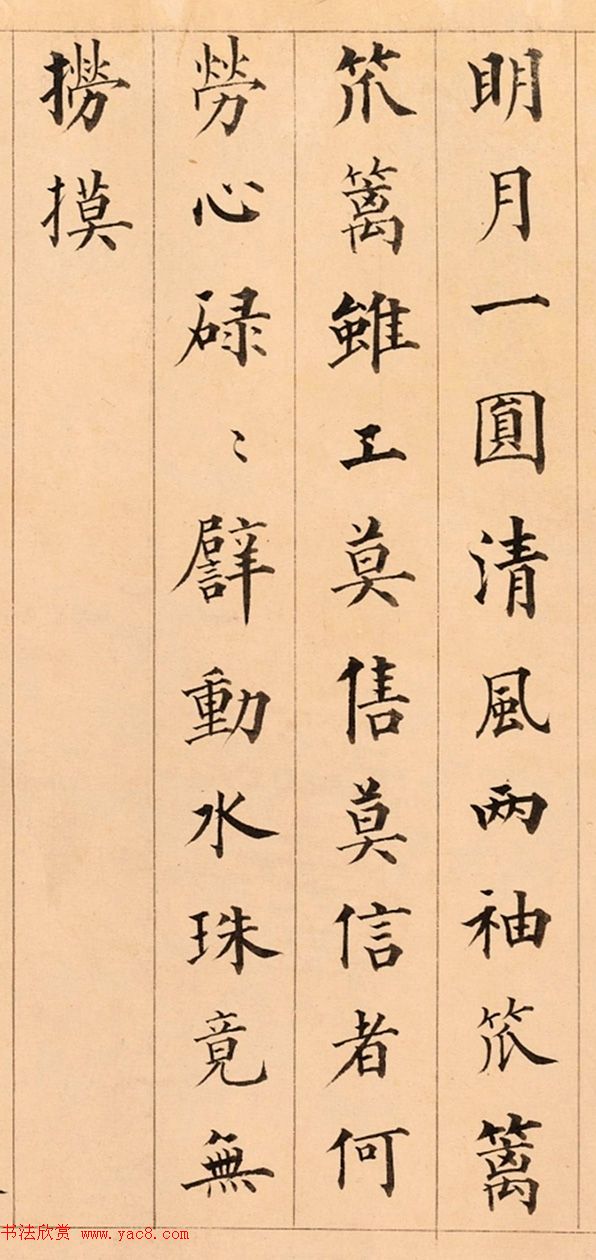 明月一圓清風两袖笊籬
笊籬雖工莫售莫信者何
勞心碌〻譬動水珠竟無
撈摸
书法欣赏 www.yac8.com